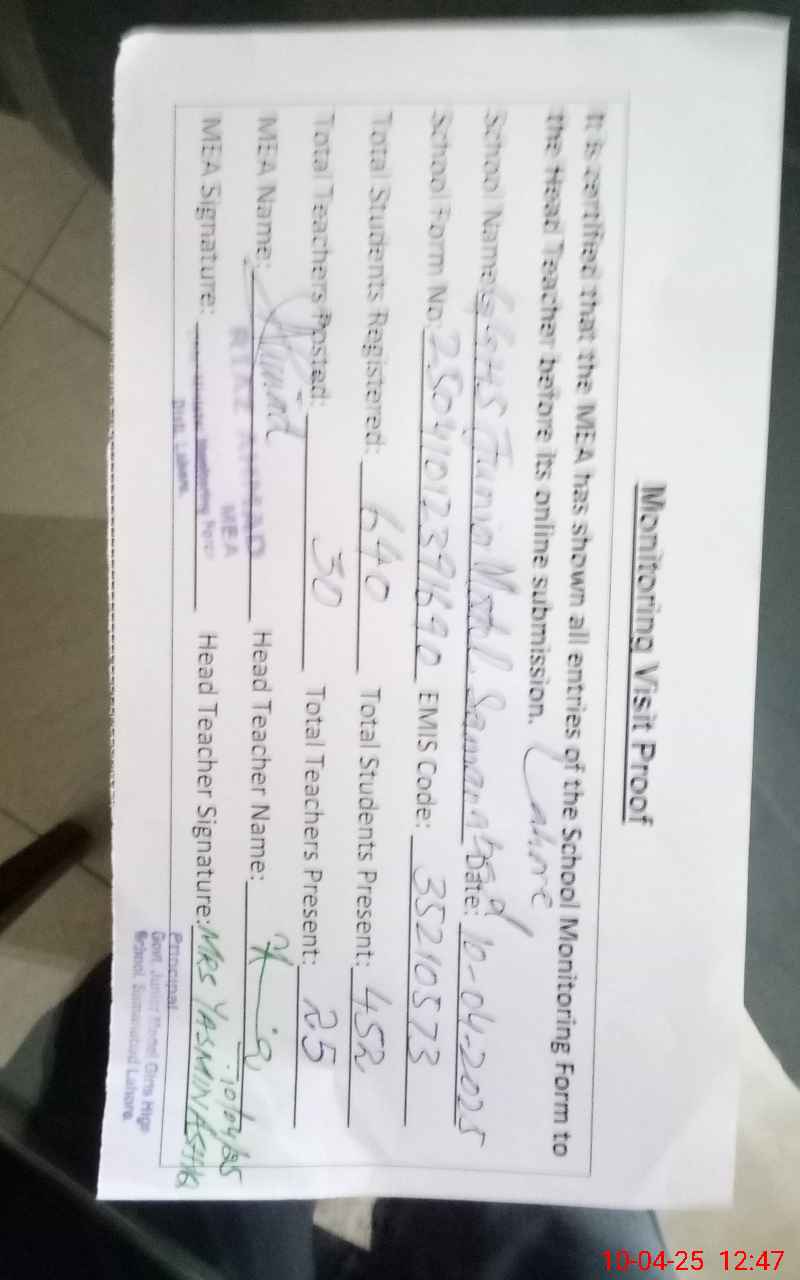 Monitoring Visit Proof
It is certified that the MEA has shown all entries of the School Monitoring Form to
the Head Teacher before its online submission.
School Name: GGHS Junior Model Samanabad Lahore Date: 10-04-2025
School Form No: EMIS Code: 35210573
Total Students Registered: 640 Total Students Present: 452
Total Teachers Posted: 30 Total Teachers Present: 25
MEA Name: Head Teacher Name:
10/04/25
MEA Signature: Head Teacher Signature: MRS YASMIN ASHIQ
RIAZ AHMAD
MEA
Distt. Lahore.
Principal
Govt. Junior Model Girls High
School Samanabad Lahore.
10-04-25 12:47